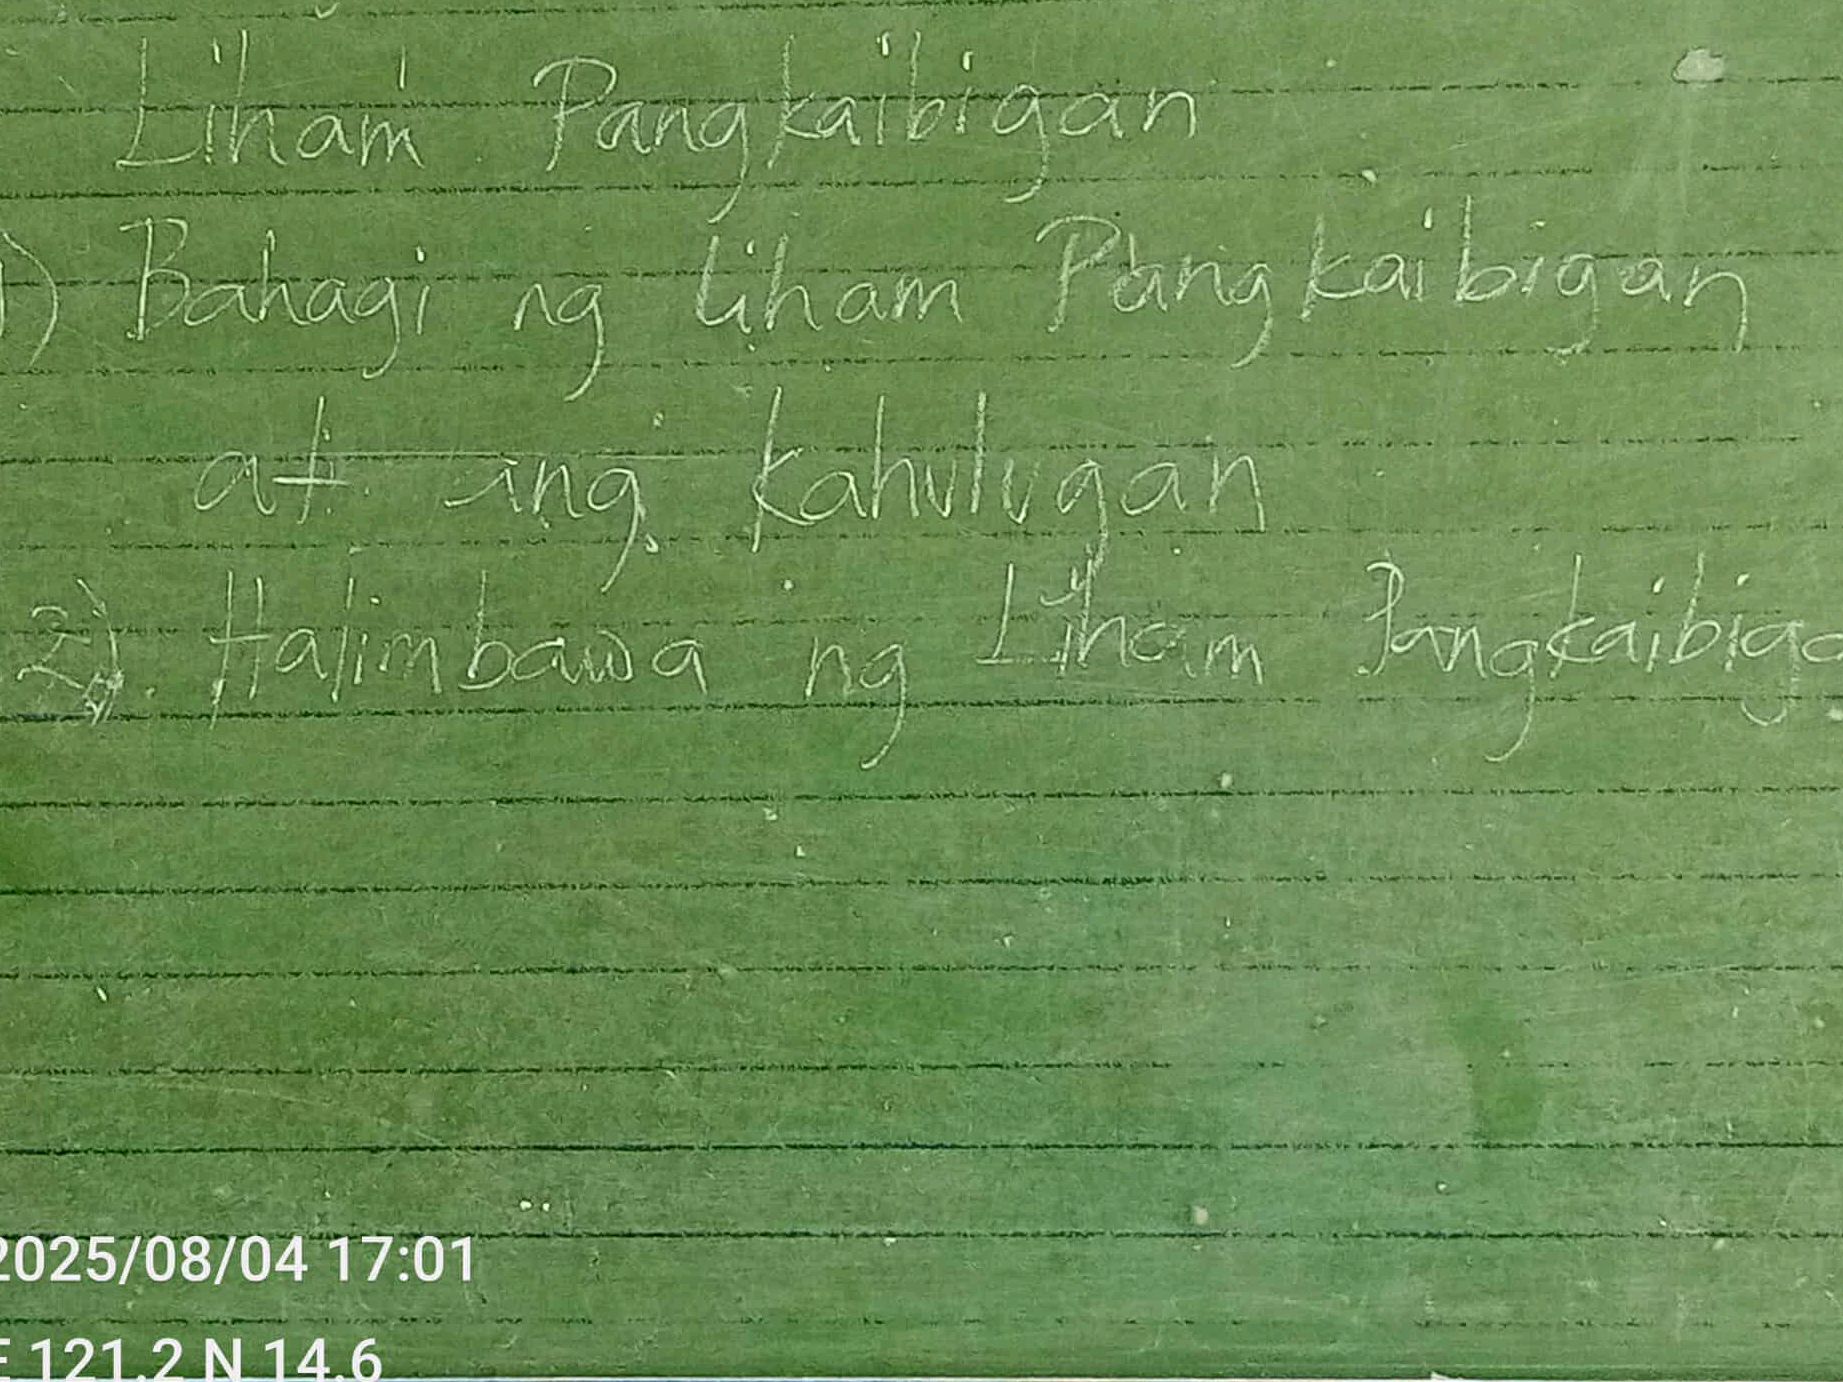 Liham Pangkaibigan
1) Bahagi ng Liham Pangkaibigan
at ang kahulugan
2). Halimbawa ng Liham Pangkaibiga
2025/08/04 17:01
E 121.2 N 14.6